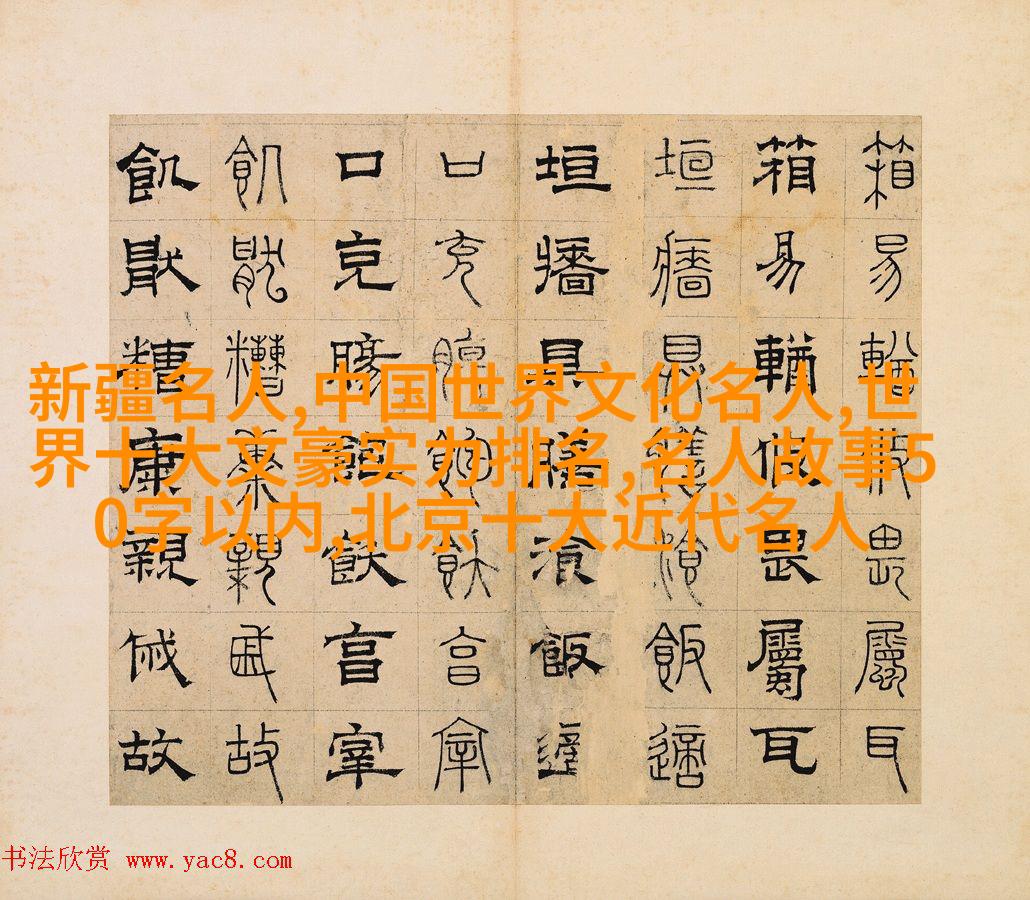 箱易輶攸畏屬耳
箱易輶攸畏屬耳
垣牆具膳湌飯適
垣牆具膳湌飯適
口充腸飽飫亯宰
口充腸飽飫亯宰
飢猒糟康親戚故
飢猒糟康親戚故
新疆名人,中国世界文化名人,世
界十大文豪实力排名,名人故事5
0字以内,北京十大近代名人
书法欣赏 www.yac8.com